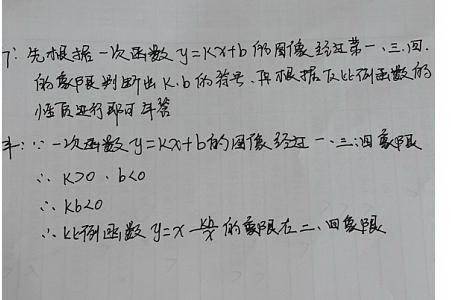 7: 先根据一次函数 y=kx+b 的图像经过第一.三.四.
的象限判断出 k.b 的符号.再根据反比例函数的
性质进行即可解答
解: ∵ 一次函数 y=kx+b的图像经过一、三、四象限
∴ k>0 . b<0
∴ kb<0
∴ 比例函数 y=x kb/x 的象限在二、四象限